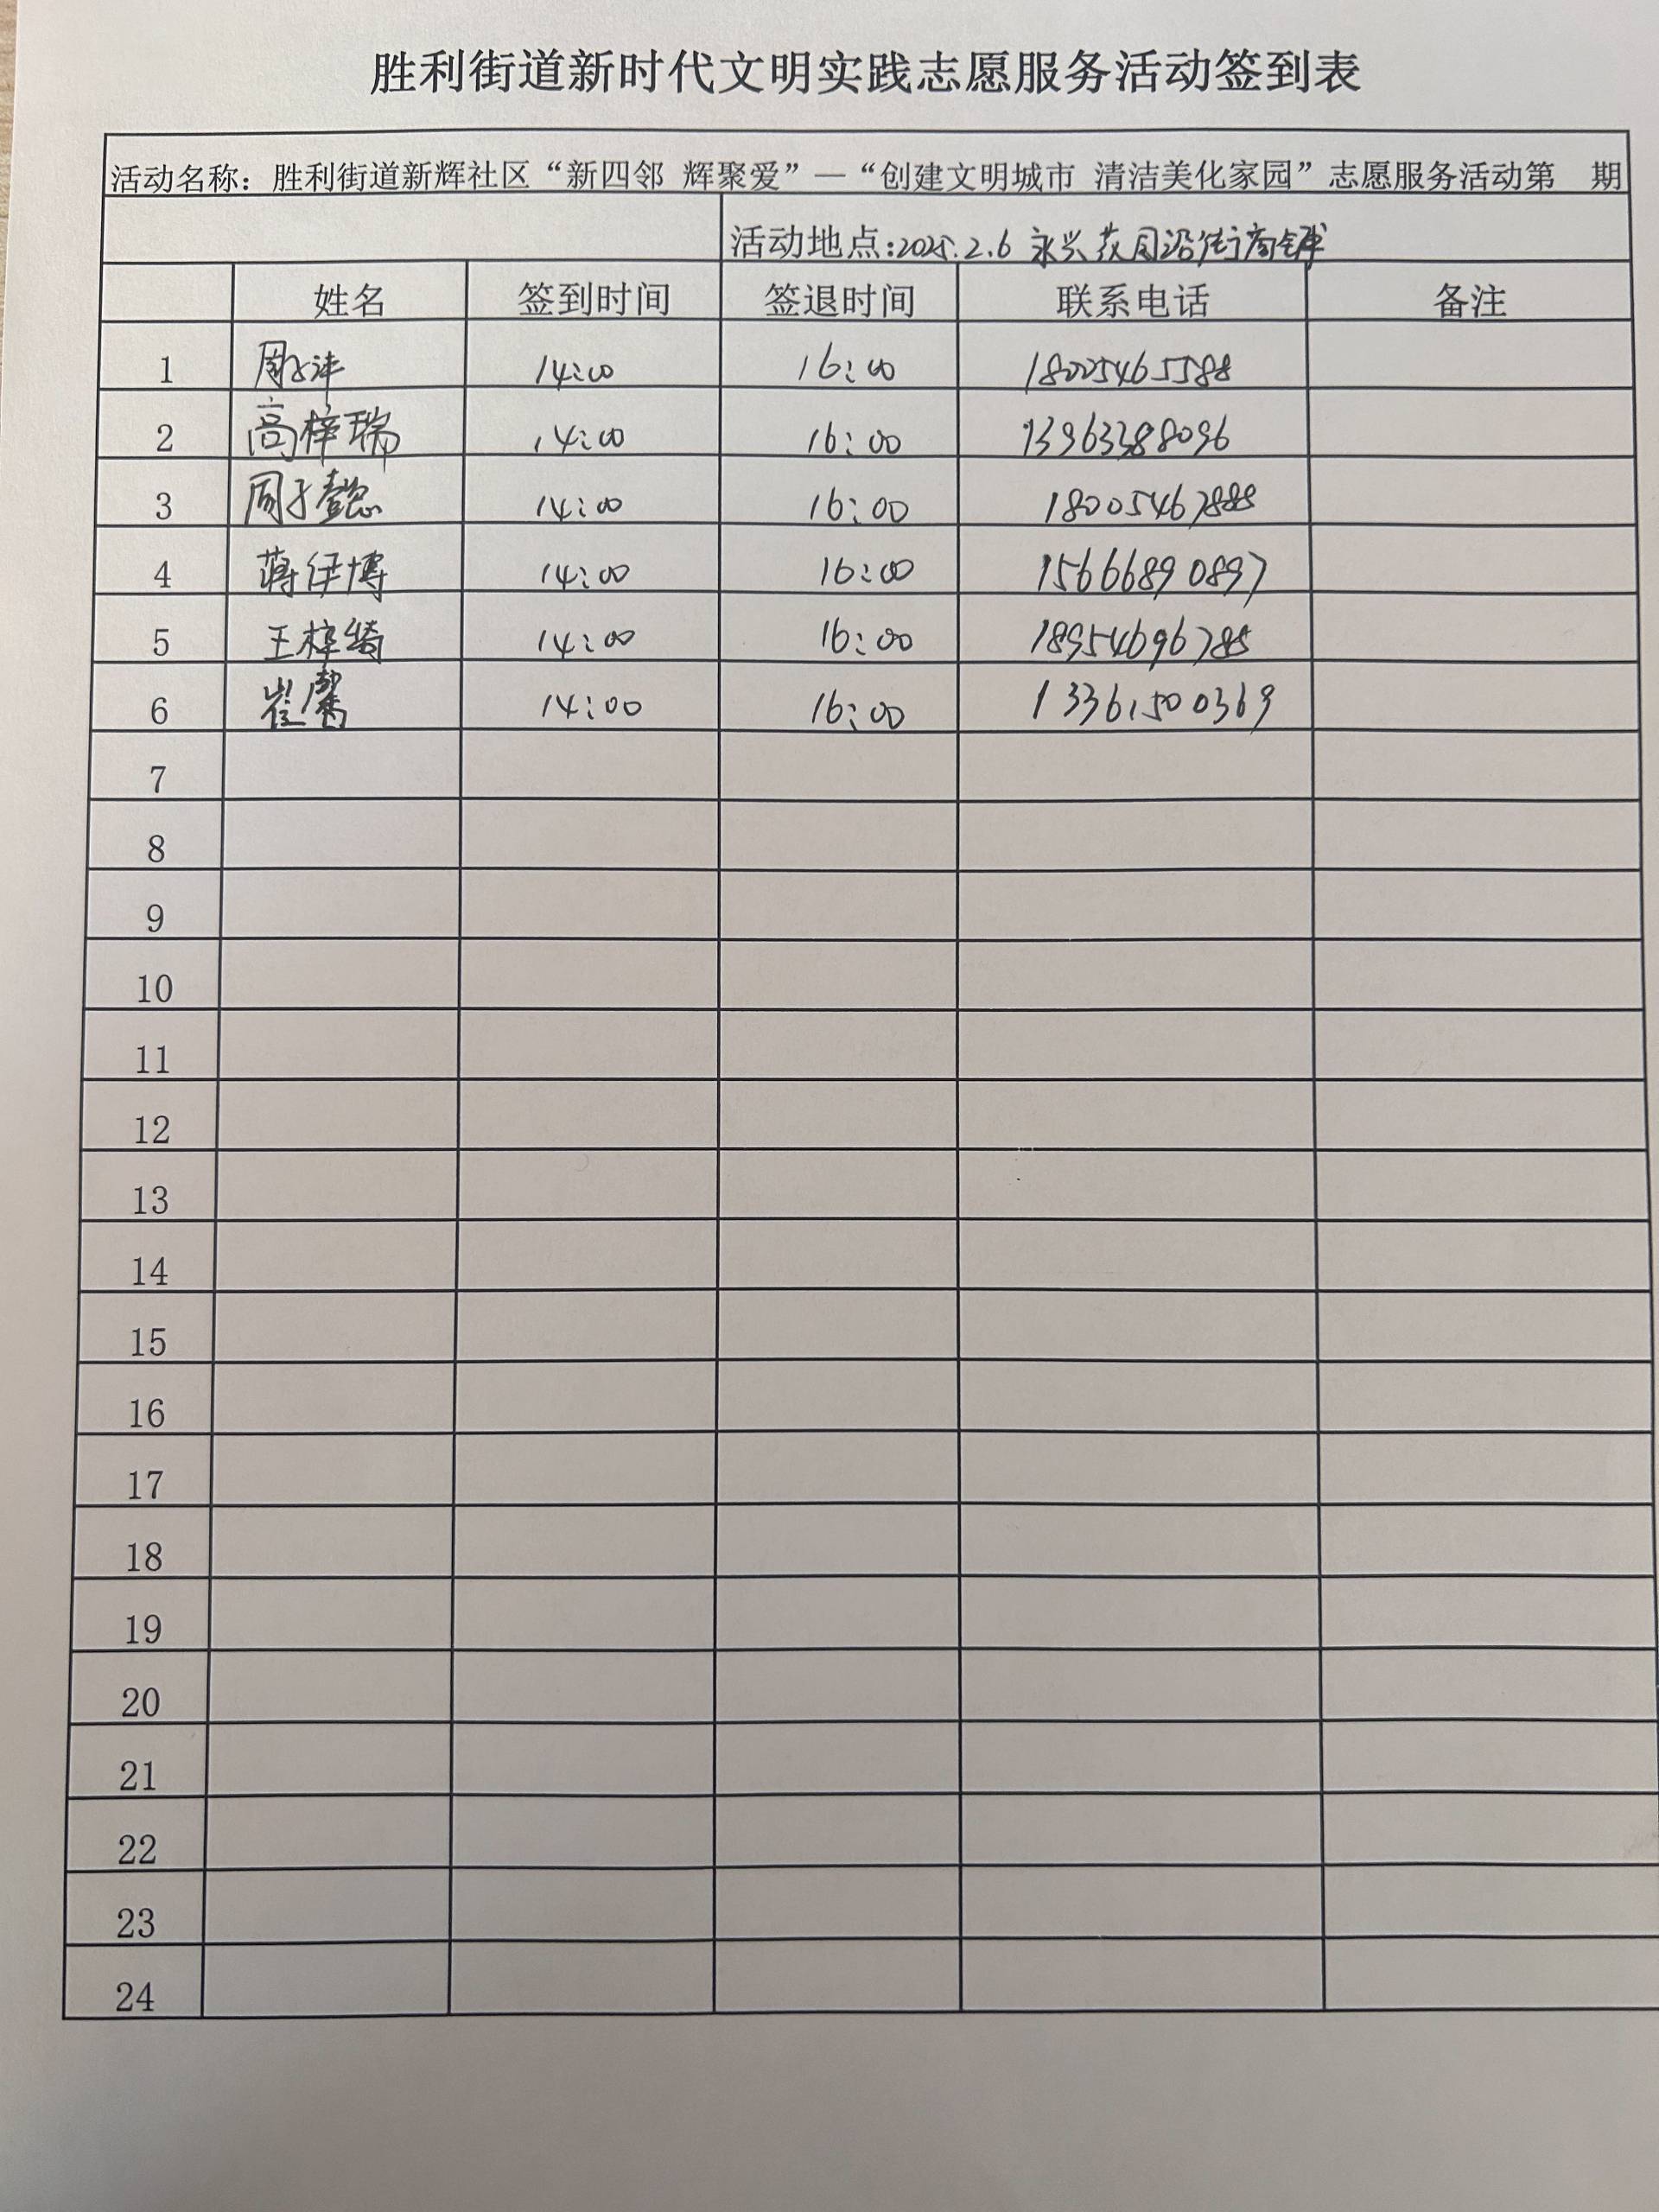 胜利街道新时代文明实践志愿服务活动签到表
活动名称：胜利街道新辉社区“新四邻 辉聚爱”—“创建文明城市 清洁美化家园”志愿服务活动第 期
活动地点:2025.2.6 永兴花园沿街商铺
姓名 签到时间 签退时间 联系电话 备注
1 周子沣 14:00 16:00 18005465588
2 高梓瑞 14:00 16:00 13963388096
3 周子懿 14:00 16:00 18005467888
4 蒋伊博 14:00 16:00 15666890897
5 王梓绮 14:00 16:00 18954696785
6 崔馨 14:00 16:00 13361500369
7
8
9
10
11
12
13
14
15
16
17
18
19
20
21
22
23
24